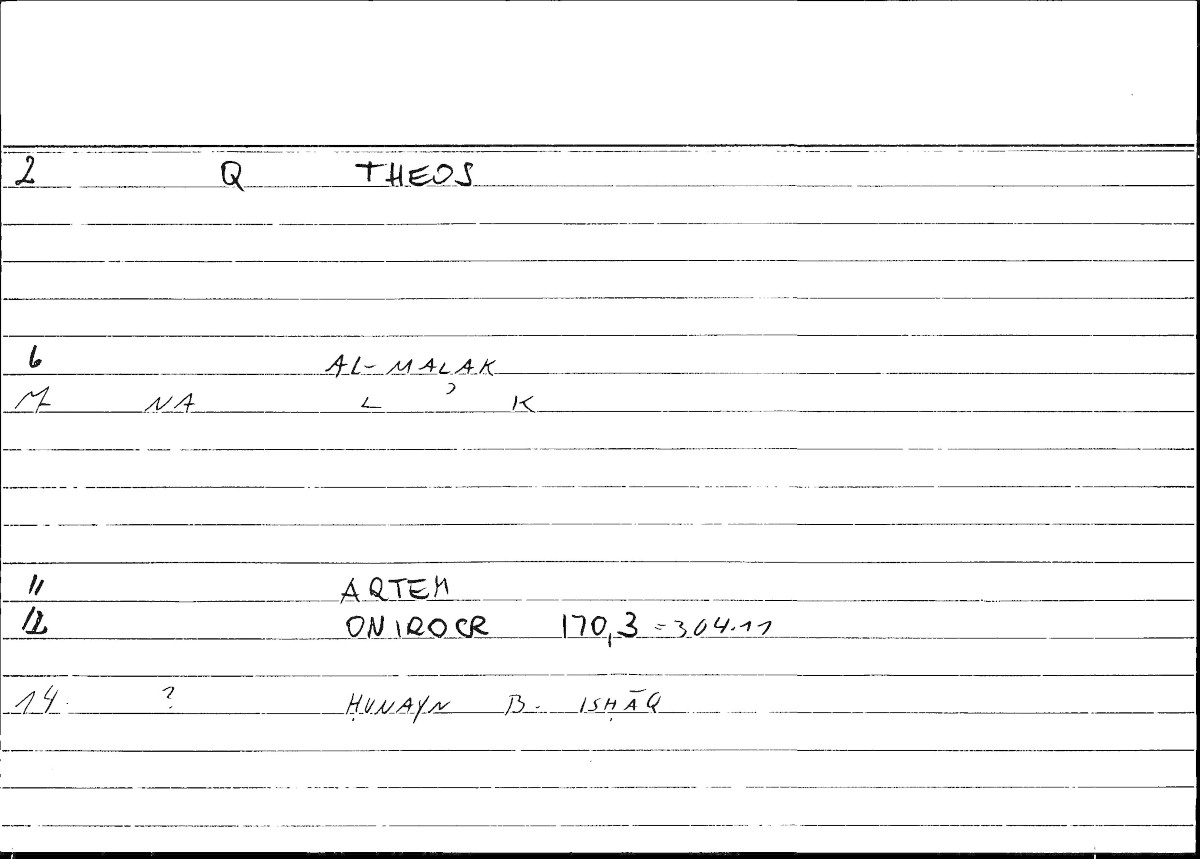 2 Q THEOS
6 AL-MALAK
7 NA L ʾ K
11 ARTEM
12 ONIROCR 170,3 = 304.11
14. ? ḤUNAYN B. ISḤĀQ